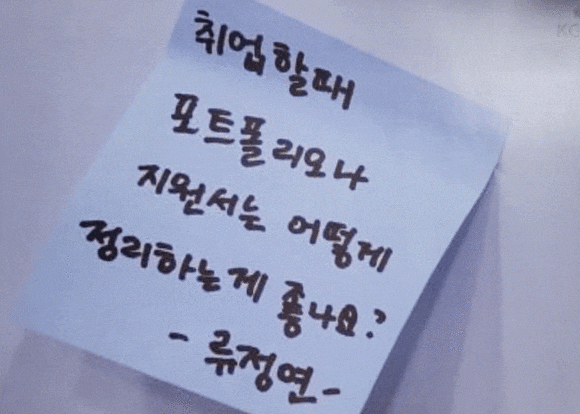 취업할때
포트폴리오나
지원서는 어떻게
정리하는게 좋나요?
- 류정연 -